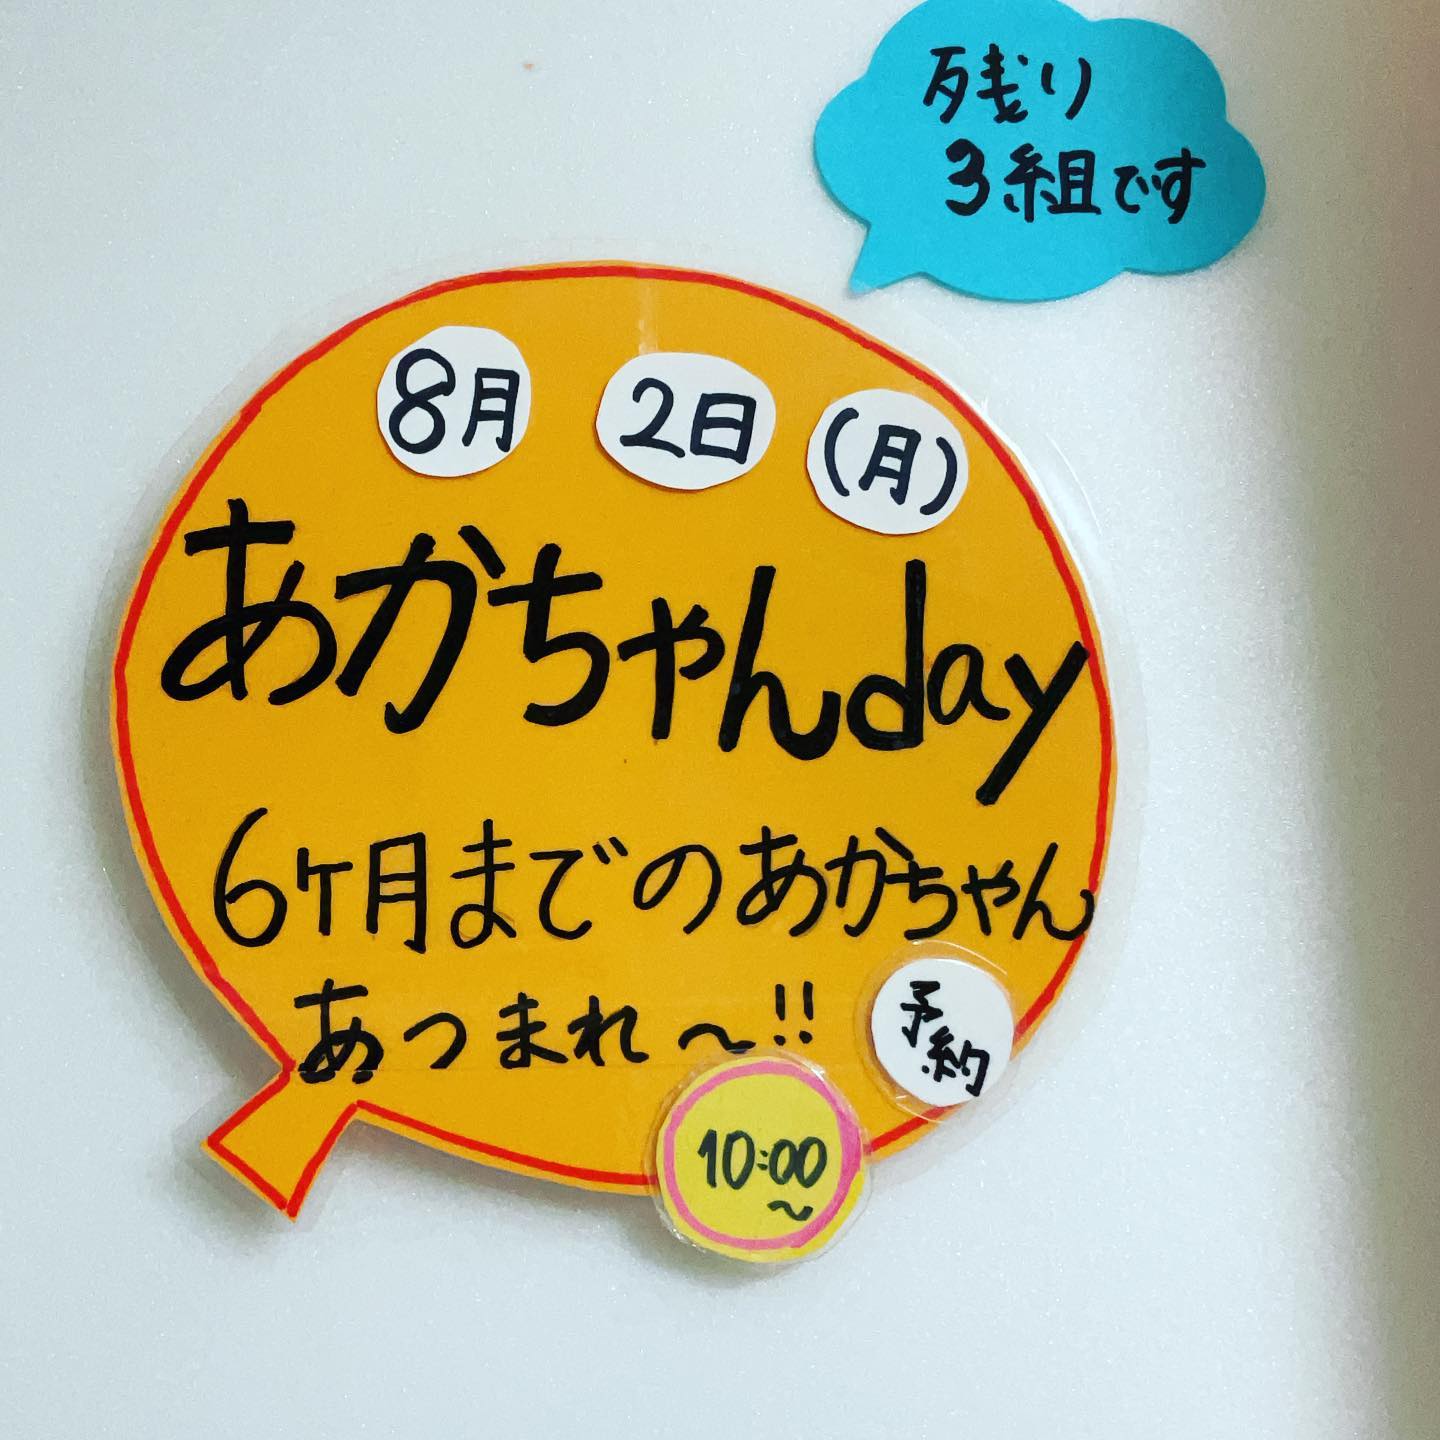 残り
3組です
8月 2日 (月)
あかちゃんday
6ヶ月までのあかちゃん
あつまれ〜!!
予約
10:00
〜